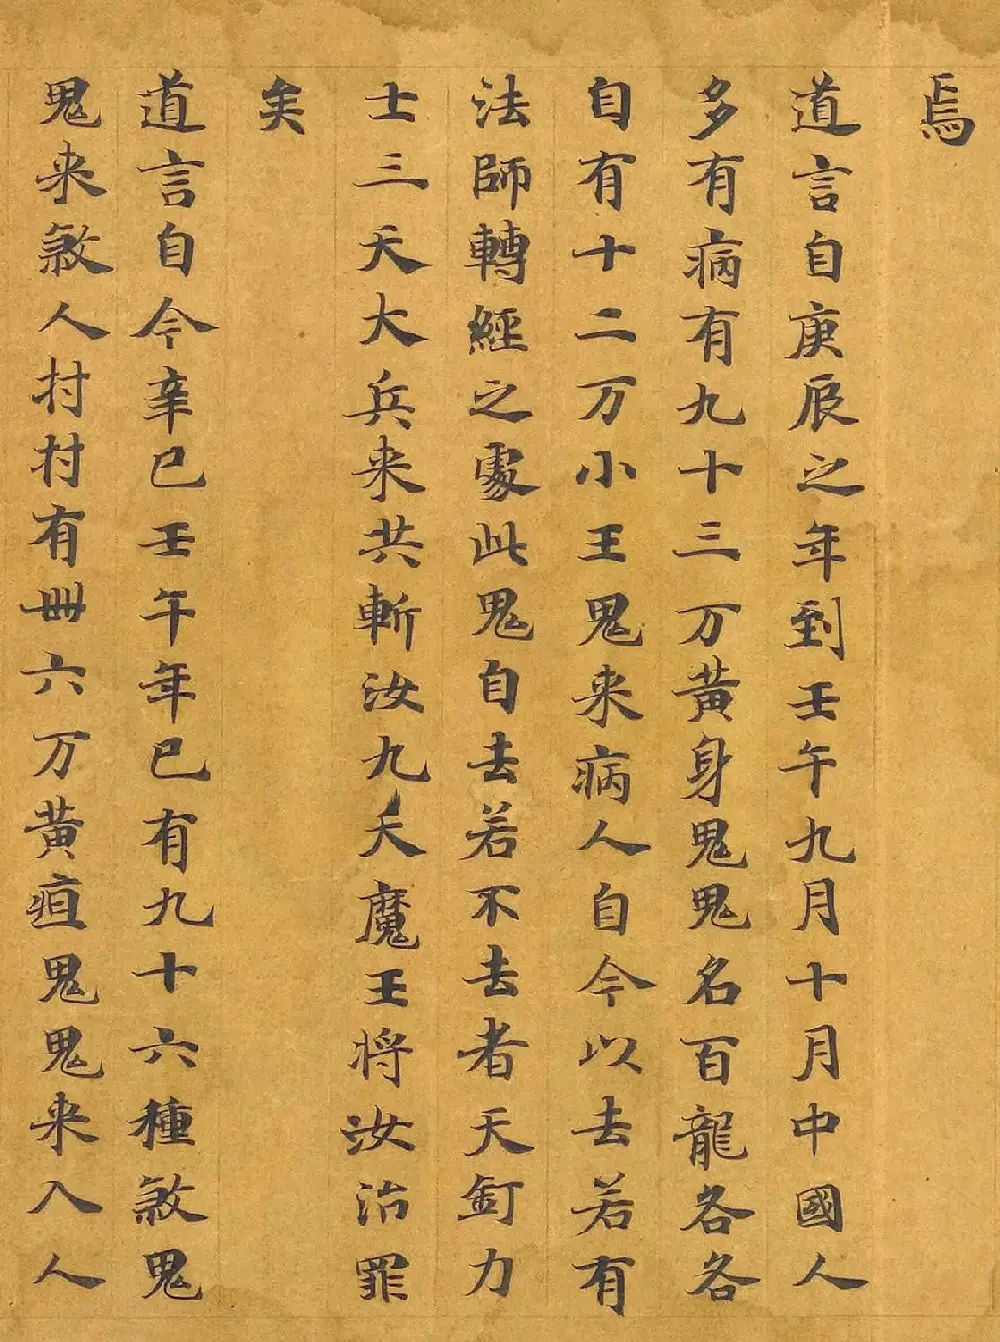 焉
道言自庚辰之年到壬午九月十月中國人
多有病有九十三万黄身鬼鬼名百龍各各
自有十二万小王鬼来病人自今以去若有
法師轉經之處此鬼自去若不去者天釘力
士三天大兵来共斬汝九天魔王将汝治罪
矣
道言自今辛巳壬午年年巳有九十六種煞鬼
鬼来煞人村村有卌六万黄疸鬼鬼来入人